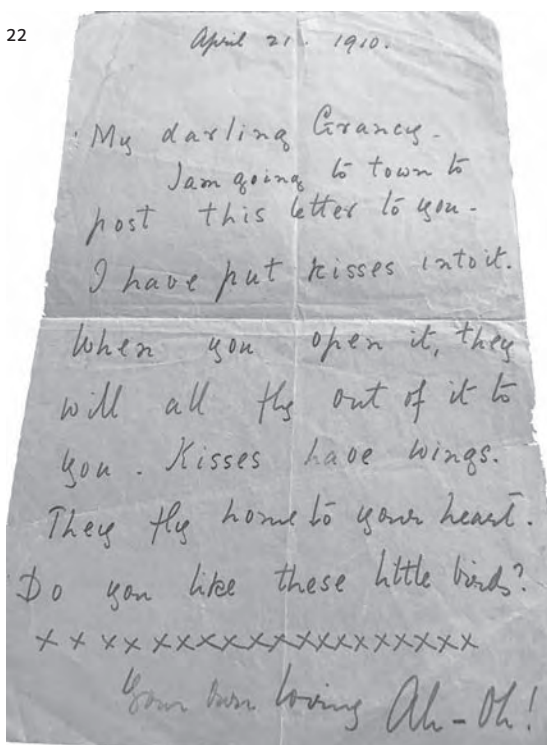 22
April 21. 1910.
My darling Grancy.
I am going to town to
post this letter to you.
I have put kisses into it.
When you open it, they
will all fly out of it to
you. Kisses have wings.
They fly home to your heart.
Do you like these little birds?
x x x x x x x x x x x x x x x x x x x x
Your own loving Ah-Oh!